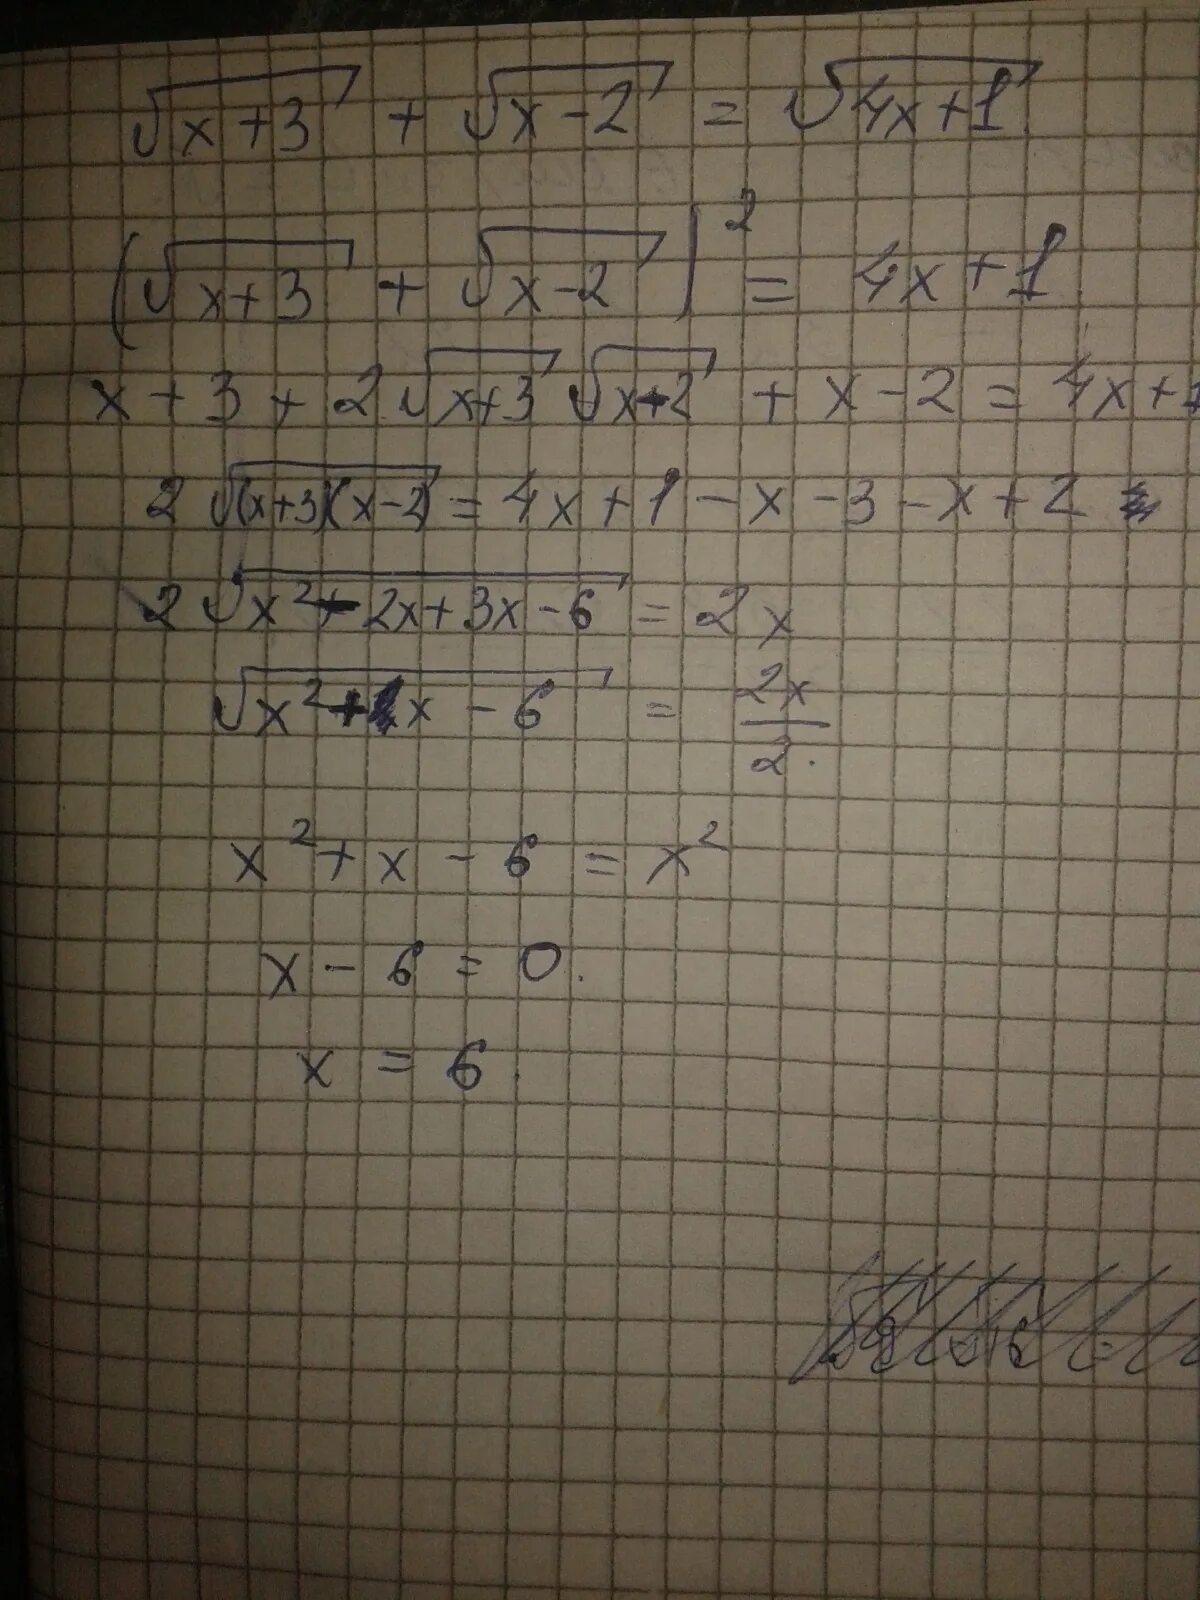 √(x+3) + √(x-2) = √(4x+1)
(√(x+3) + √(x-2))² = 4x+1
x+3+2√(x+3) √(x-2) + x-2 = 4x+1
2√((x+3)(x-2)) = 4x+1-x-3-x+2
2√(x²-2x+3x-6) = 2x
√(x²+x-6) = 2x/2.
x²+x-6 = x²
x-6=0.
x=6.